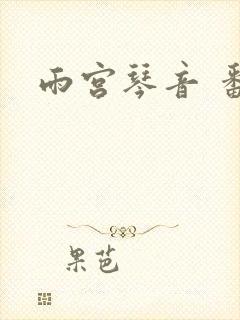 雨宫琴音 番
果芭